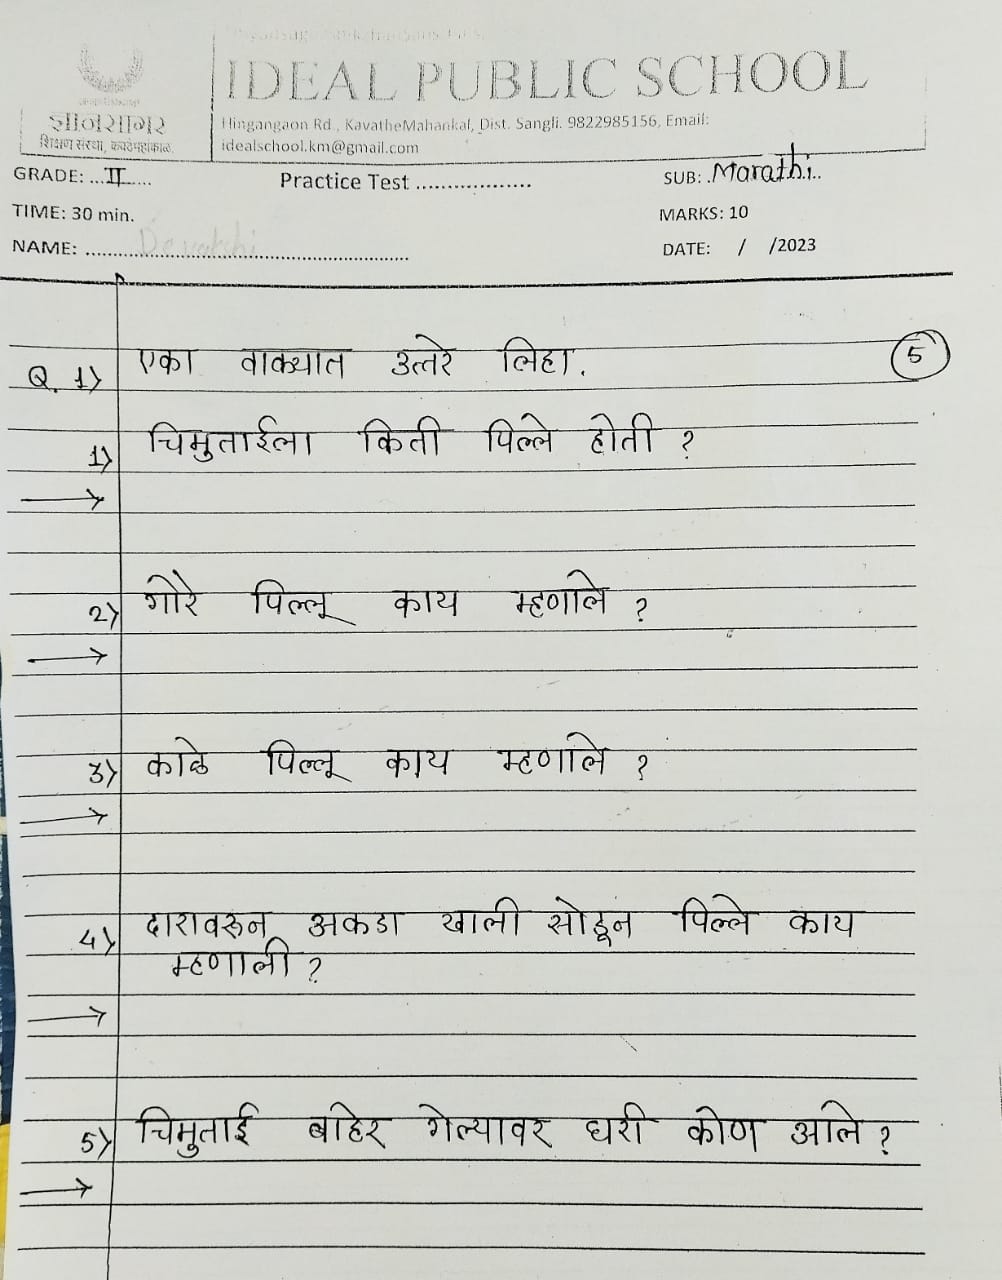 IDEAL PUBLIC SCHOOL
ज्ञानसागर
शिक्षण संस्था, कवठेमहांकाळ.
Hingangaon Rd., KavatheMahankal, Dist. Sangli. 9822985156, Email:
idealschool.km@gmail.com
GRADE: ...II...... Practice Test .................. SUB: .Marathi..
TIME: 30 min. MARKS: 10
NAME: ............................................................ DATE: / /2023
Q. 1) एका वाक्यात उत्तरे लिहा. 5
1) चिमुताईला किती पिल्ले होती ?
→
2) गोरे पिल्लू काय म्हणाले ?
→
3) काळे पिल्लू काय म्हणाले ?
→
4) दारावरून अकडा खाली सोडून पिल्ले काय
म्हणाली ?
→
5) चिमुताई बाहेर गेल्यावर घरी कोण आले ?
→